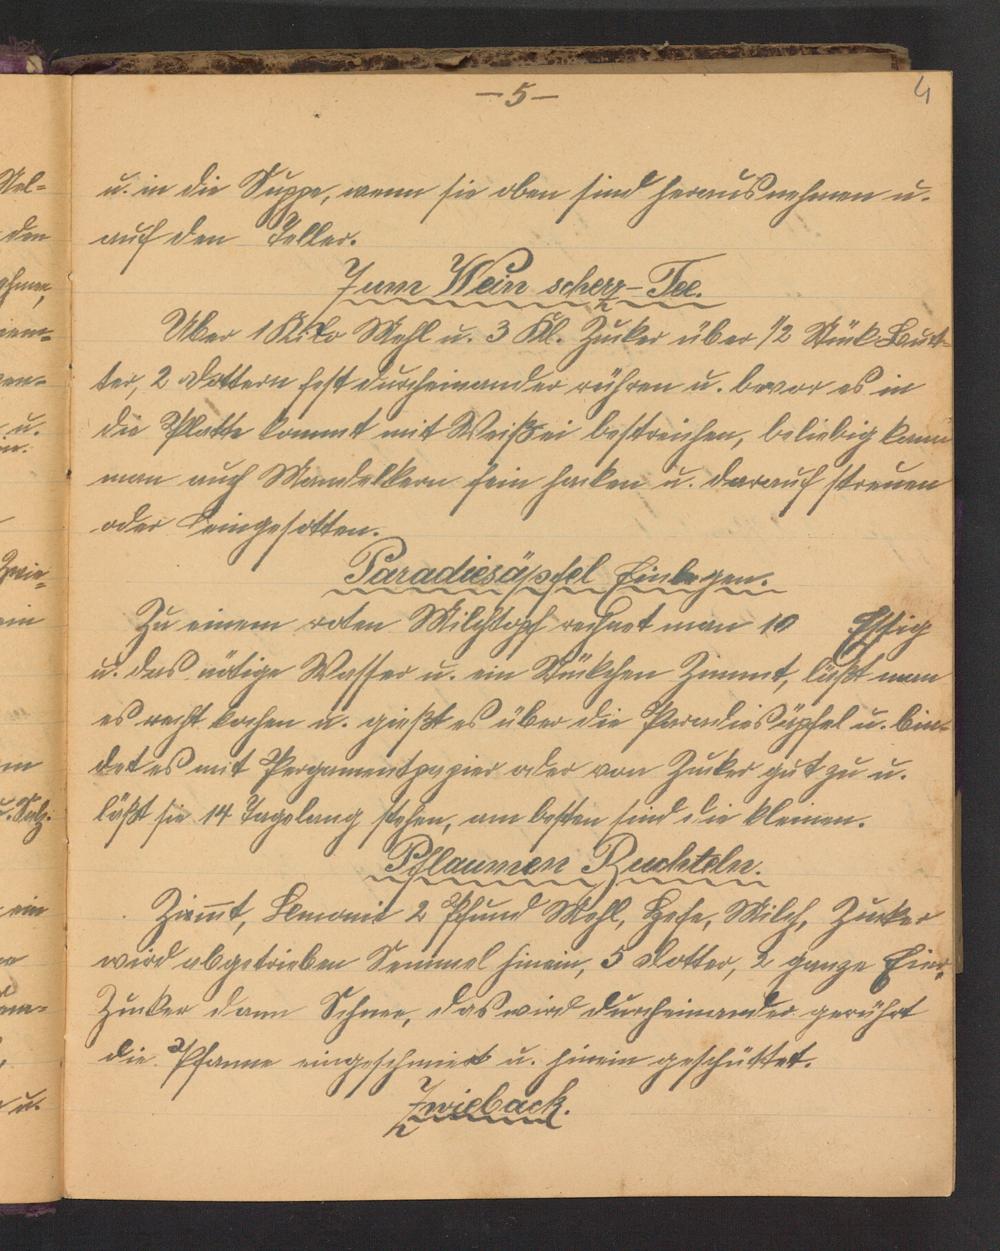 — 5 —
4
u. in die Suppe, wenn sie oben sind herausnehmen u.
auf den Teller.
Zum Wein scherz-Tee.
Über 1 Kilo Mehl u. 3 Kl. Zucker über 1/2 Stück But-
ter, 2 Dottern fest durcheinander rühren u. bevor es in
die Platte kommt mit Weißei bestreichen, beliebig kann
man auch Mandelkern fein hacken u. darauf streuen
oder eingesotten.
Paradiesäpfel Einlegen.
Zu einem roten Milchtopf rechnet man 10 Essig
u. das nötige Wasser u. ein Stückchen Zimmt, läßt man
es recht kochen u. gießt es über die Paradiesäpfel u. bin-
det es mit Pergamentpapier oder von Zucker gut zu u.
läßt sie 14 Tagelang stehen, am besten sind die kleinen.
Pflaumen Buchteln.
Zimt, Lemonie 2 Pfund Mehl, Hefe, Milch, Zucker
wird abgetrieben Semmel hinein, 5 Dotter, 2 ganze Eier,
Zucker dann Schnee, das wird durcheinander gerührt
die Pfanne eingeschmiert u. hinein geschüttet.
Zwieback.